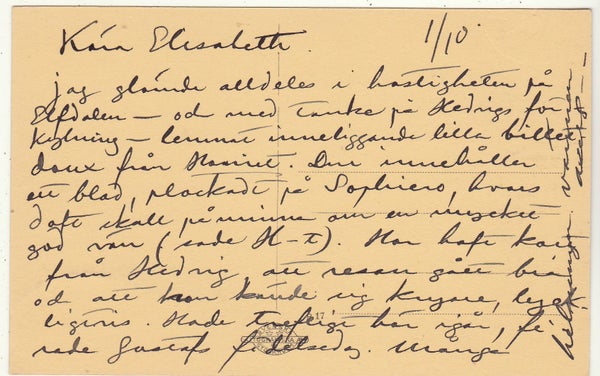 Kära Elisabeth.
1/10.
jag glömde alldeles i hastigheten på
Elfdalen — och med tanke på Hedvigs för-
kylning — lemnat inneliggande lilla billet
doux från Harriet. Den innehåller
ett blad, plockadt på Sophiero, hvars
doft skall påminna om en mycket
god vän (sade H-t). Har haft kort
från Hedvig, att resan gått bra
och att hon kände sig kryare, lyck-
ligtvis. Hade trefligt här igår, fi-
rade Gustafs födelsedag. Många
hälsningar